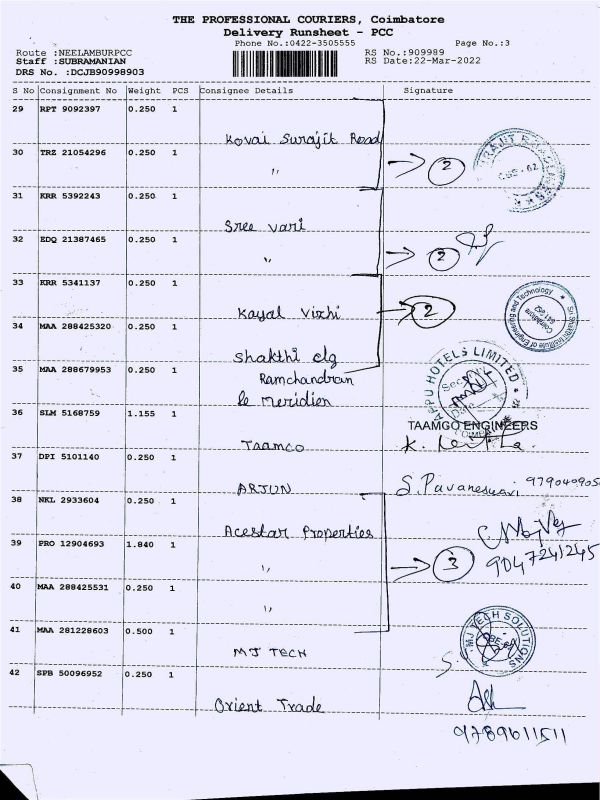 THE PROFESSIONAL COURIERS, Coimbatore
Delivery Runsheet - PCC
Phone No.:0422-3505555 Page No.:3
Route :NEELAMBURPCC RS No.:909989
Staff :SUBRAMANIAN RS Date:22-Mar-2022
DRS No. :DCJB90998903
S No Consignment No Weight PCS Consignee Details Signature
29 RPT 9092397 0.250 1
Kovai Surajit Road
30 TRZ 21054296 0.250 1
" → 2
31 KRR 5392243 0.250 1
Sree vari
32 EDQ 21387465 0.250 1
" → 2
33 KRR 5341137 0.250 1
Kayal Vizhi → 2
Sri Shakthi Institute of Engineering and Technology
Coimbatore
641 062
34 MAA 288425320 0.250 1
Shakthi clg
35 MAA 288679953 0.250 1
Ramchandran
Le meridien
APPU HOTELS LIMITED
36 SLM 5168759 1.155 1
TAAMCO ENGINEERS
Taamco
37 DPI 5101140 0.250 1
ARJUN S. Pavaneswari 979040905
38 NKL 2933604 0.250 1
Acestar Properties
39 PRO 12904693 1.840 1
9047241245
" → 3
40 MAA 288425531 0.250 1
"
41 MAA 281228603 0.500 1
MJ TECH
MJ TECH SOLUTIONS
42 SPB 50096952 0.250 1
Orient Trade
9789611511